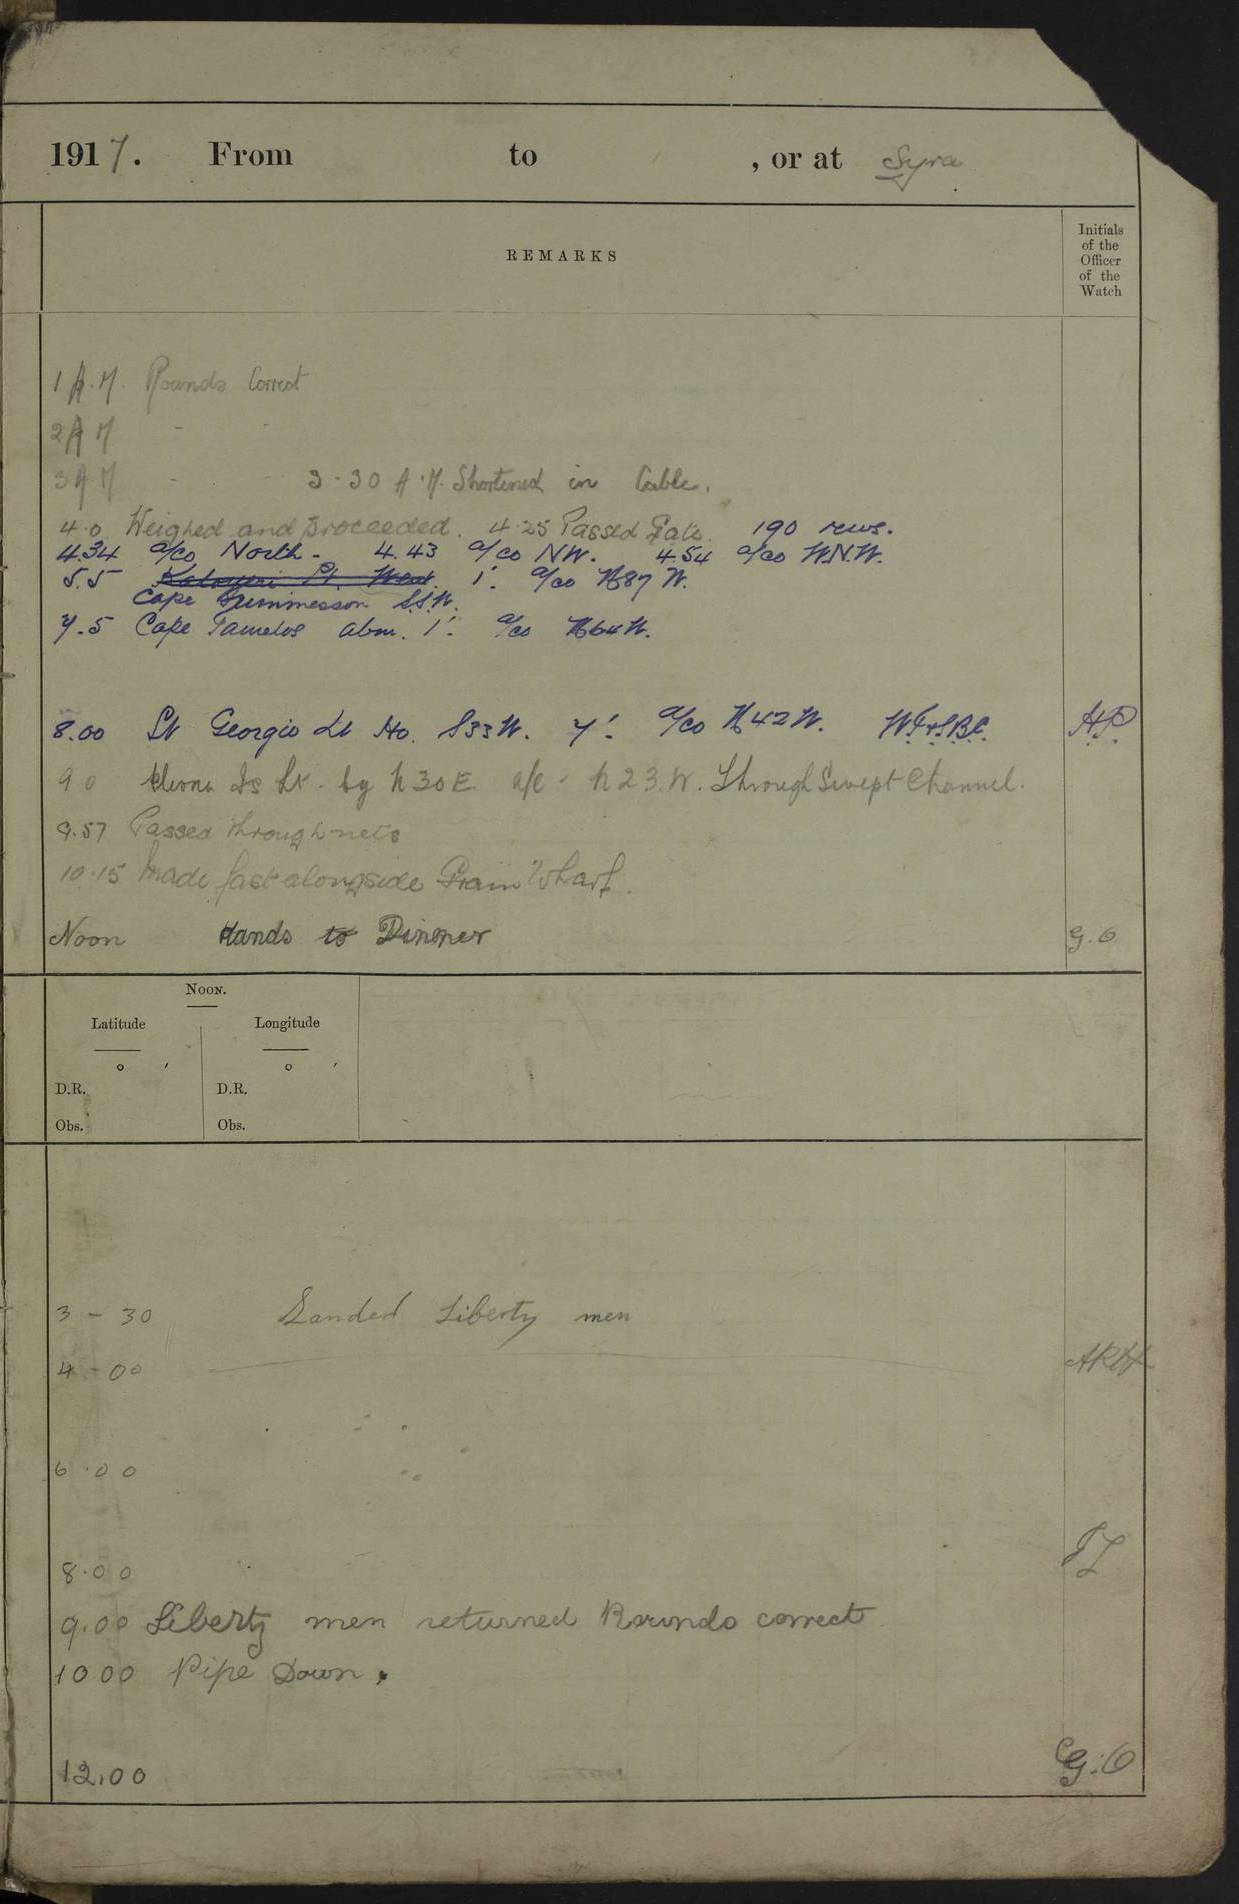 1917. From to , or at Syra
REMARKS
Initials of the Officer of the Watch
1 A.M. Rounds Correct
2 A M - -
3 A M - - 3-30 A.M. Shortened in Cable.
4.0 Weighed and proceeded. 4.25 Passed Gate. 190 revs.
4.34 a/co North. 4.43 a/co NW. 4.54 a/co WNW.
5.5 1'. a/co N87W.
Cape SSW.
7.5 Cape Tamelos abm. 1'. a/co N64W.
8.00 St Georgio Lt Ho. S33W. 7'. a/co N42W. HP
9 0 Is Lt. by N30E a/c - N23.W. Through Swept Channel.
9.57 Passed through nets
10.15 Made fast alongside Wharf.
Noon Hands to Dinner G.O
NOON.
Latitude Longitude
° ′ ° ′
D.R. D.R.
Obs. Obs.
3 - 30 Landed Liberty men
4 - 00
6.00
8.00
9.00 Liberty men returned Rounds correct
10 00 Pipe Down.
12.00 G.O